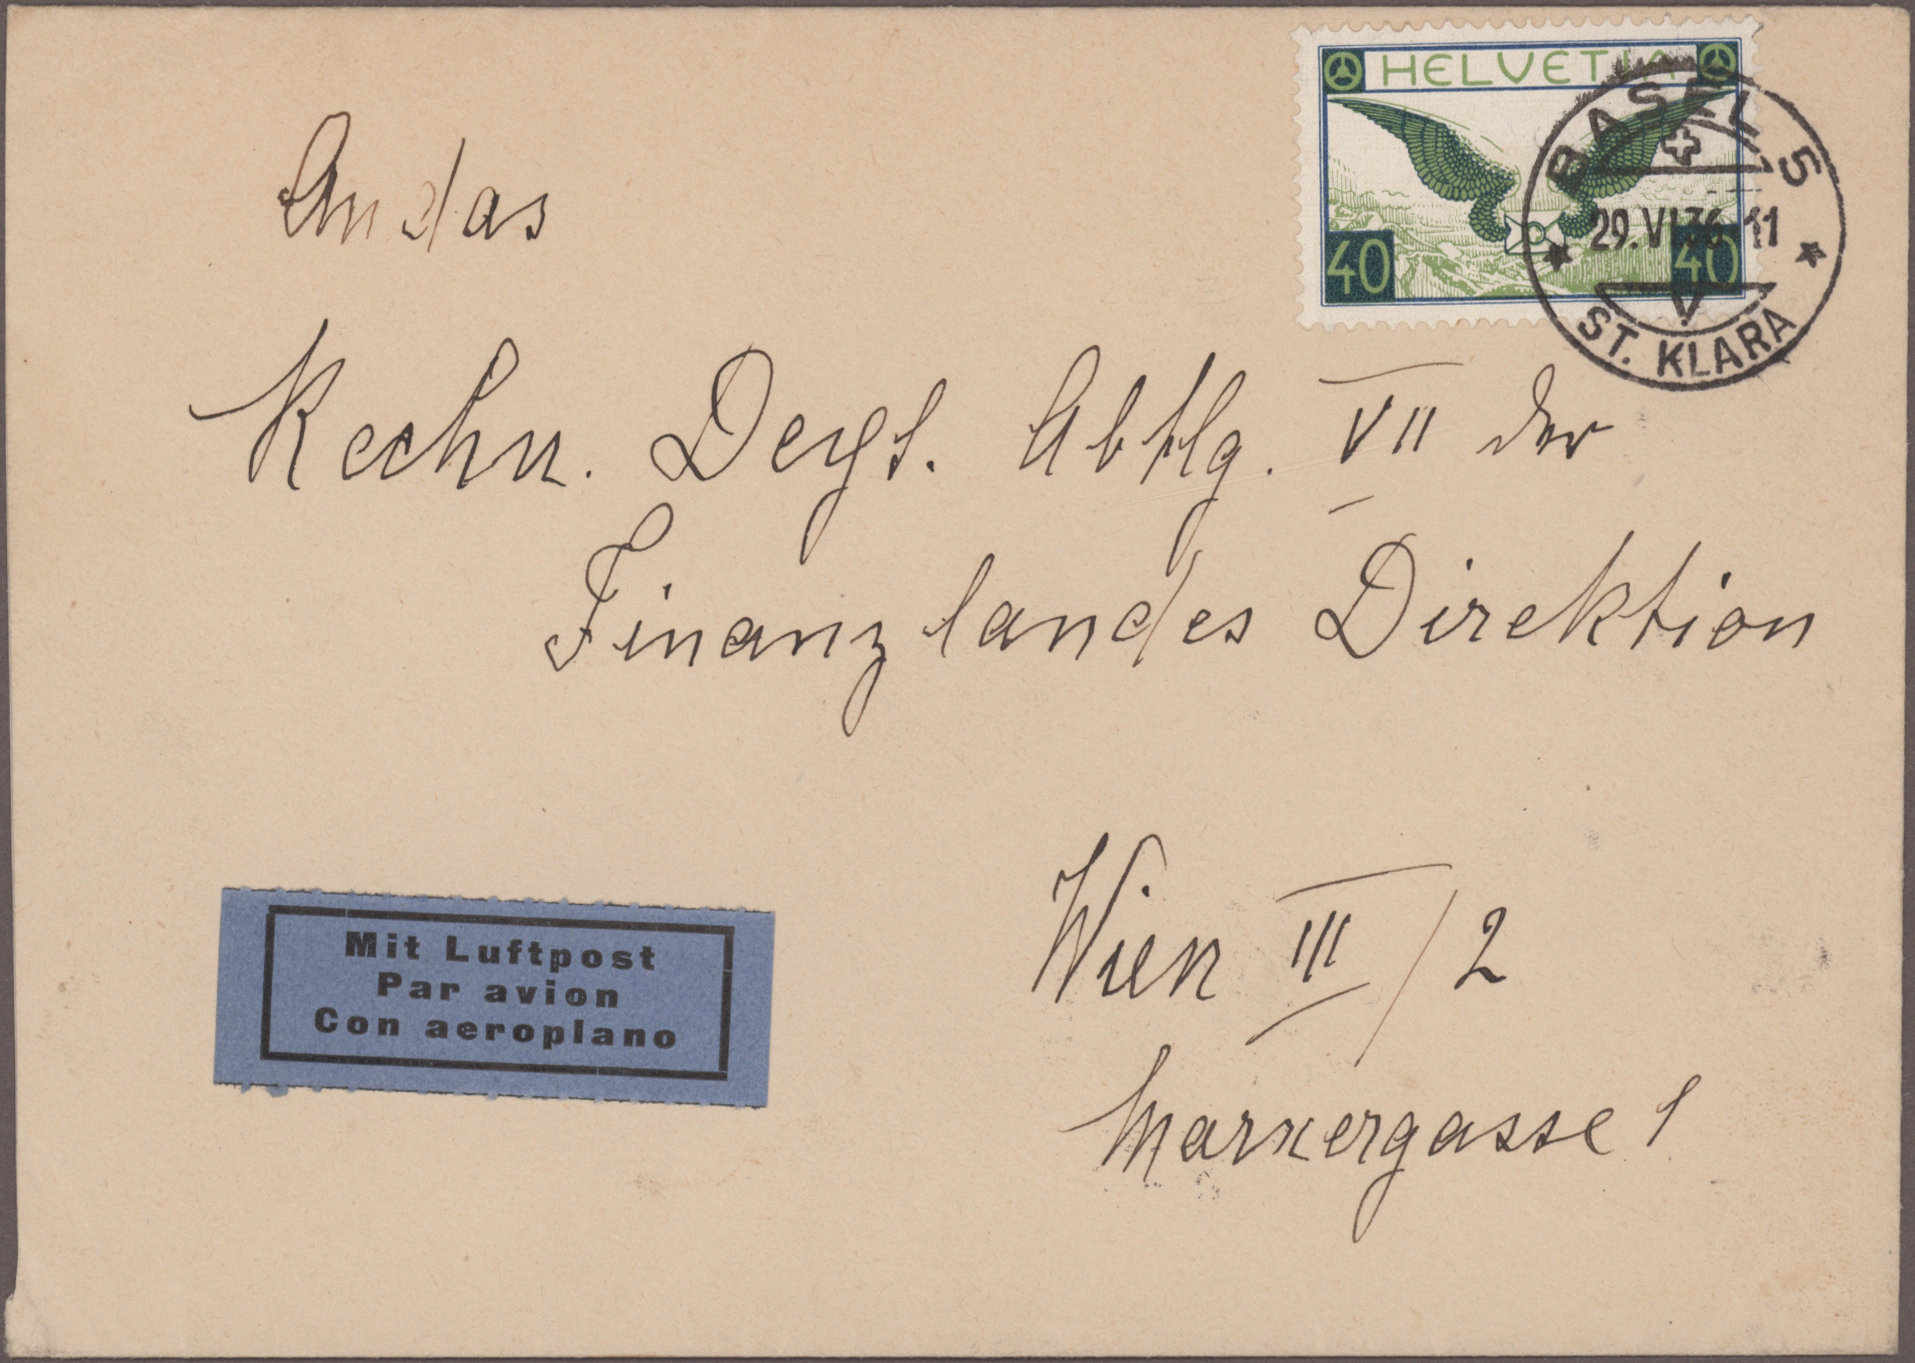 HELVETIA
40 40
BASEL 5
29.VI.36-11
ST. KLARA
An das
Rechn. Dept. Abtlg. VII der
Finanzlandes Direktion
Wien III/2
Marxergasse 1
Mit Luftpost
Par avion
Con aeroplano